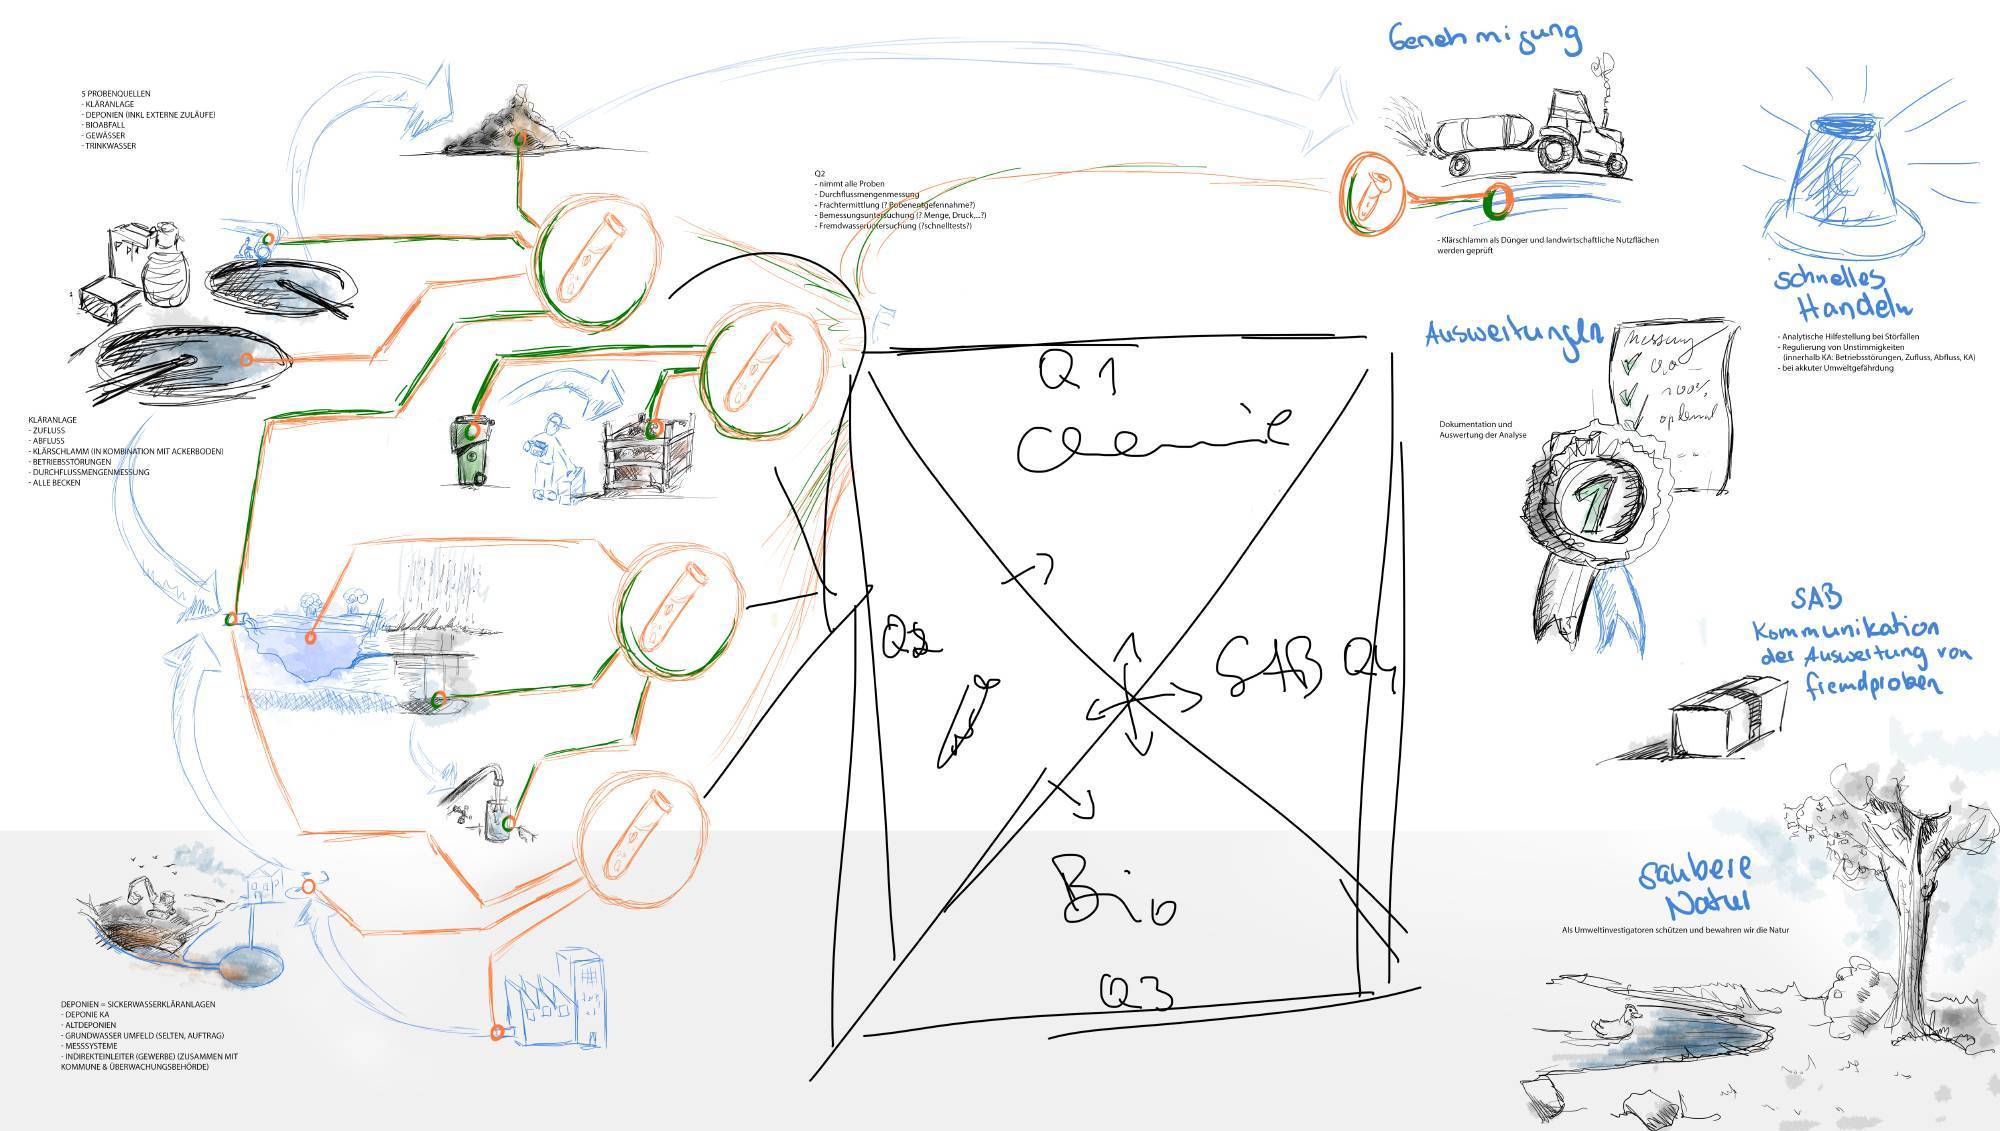 Genehmigung
5 PROBENQUELLEN
- KLÄRANLAGE
- DEPONIEN (INKL EXTERNE ZULÄUFE)
- BIOABFALL
- GEWÄSSER
- TRINKWASSER
Q2
- nimmt alle Proben
- Durchflussmengenmessung
- Frachtermittlung (? Pobenentgefennahme?)
- Bemessungsuntersuchung (? Menge, Druck,...?)
- Fremdwasseruntersuchung (?schnelltests?)
- Klärschlamm als Dünger und landwirtschaftliche Nutzflächen
werden geprüft
schnelles
Handeln
- Analytische Hilfestellung bei Störfällen
- Regulierung von Unstimmigkeiten
(innerhalb KA: Betriebsstörungen, Zufluss, Abfluss, KA)
- bei akkuter Umweltgefährdung
Auswertungen
Messung
0,0
100%
optimal
Dokumentation und
Auswertung der Analyse
1
KLÄRANLAGE
- ZUFLUSS
- ABFLUSS
- KLÄRSCHLAMM (IN KOMBINATION MIT ACKERBODEN)
- BETRIEBSSTÖRUNGEN
- DURCHFLUSSMENGENMESSUNG
- ALLE BECKEN
Q1
Chemie
Q2
SAB Q4
Bio
Q3
SAB
Kommunikation
der Auswertung von
fremdproben
saubere
Natur
Als Umweltinvestigatoren schützen und bewahren wir die Natur
DEPONIEN = SICKERWASSERKLÄRANLAGEN
- DEPONIE KA
- ALTDEPONIEN
- GRUNDWASSER UMFELD (SELTEN, AUFTRAG)
- MESSSYSTEME
- INDIREKTEINLEITER (GEWERBE) (ZUSAMMEN MIT
KOMMUNE & ÜBERWACHUNGSBEHÖRDE)